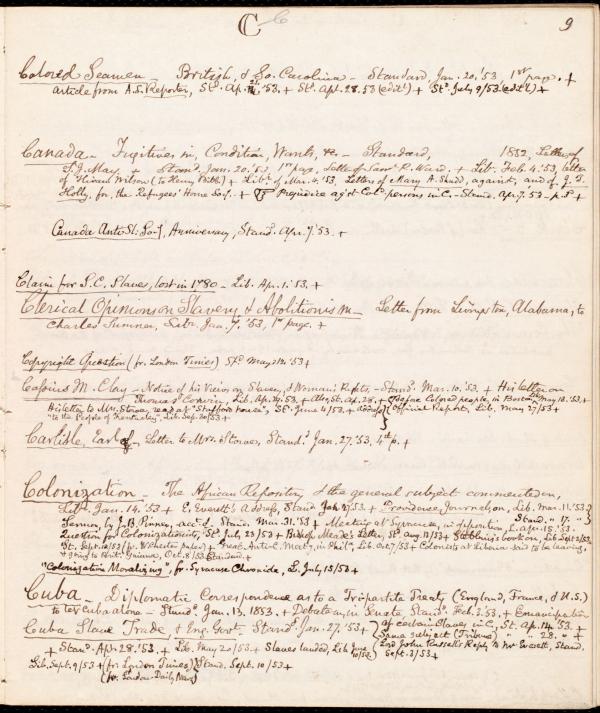 C
9
Colored Seamen - British, & So. Carolina - Standard, Jan. 20, '53, 1st page. +
article from A.S. Reporter, Std. Ap. '53. + Std. Apl. 28. 53 (edit.l) + Std. July 9/53 (edit.l) +
Canada - Fugitives in, Condition, Wants, &c. - Standard, 1852, Letter of
S. J. May, + Stand. Jan. 20. '53 1st page, Letter of Saml. R. Ward. + Lib. Feb. 4. '53, letter
of Hiram Wilson (to Henry Bibb) + Libr. of Mar. 4. '53, Letters of Mary A. Shadd, against, and of J. T.
Holly, for, the Refugees' Home Socy. + Prejudice agst. Cold. persons in C. - Stand. Apr. 7. 53 - p. 1 +
Canada Anti Sl. Socy., Anniversary, Stand. Apr. 7. 53. +
Claim for S.C. Slaves, lost in 1780 - Lib. Apr. 1. '53. +
Clerical Opinions on Slavery & Abolitionism - Letter from Livingston, Alabama, to
Charles Sumner, Libr. Jan. 7. '53, 1st page. +
Copyright Question (fr. London Times) Std. May '53 +
Cassius M. Clay - Notice of his Views on Slavery, & Woman's Rights, - Stand. Mar. 10. '53. + His letter on
Thomas Corwin, Lib. Ap. 29. 53 + Also, St. Ap. 28. + before Colored people, in Boston, May 13. '53 +
His letter to Mrs. Stowe, read at "Stafford House", St. June 4/53. + address Official Report, Lib. May 27/53 +
"to the People of Kentucky", Lib. Sep. 30/53 +
Carlisle, Earl of - Letter to Mrs. Stowe, Stand. Jan. 27. '53, 4th p. +
Colonization - The African Repository & the general subject commented on,
Libr. Jan. 14. '53 + E. Everett's Address, Stand. '53. + Providence Journal on, Lib. Mar. 11. '53
Stand. " 17. "
Sermon, by J. B. Pinney, acct. of. Stand. Mar. 31. '53 + Meeting at Syracuse, in opposition, L. Apr. 15. '53.
Question for Colonizationists, St. July 23/53 + Bishop Meade's Letter, St. Aug. 13/53 + book on, Lib. Sept. 2/53
St. Sept. 10/53 + Great Anti-C. Meetg. in Phila. Lib. Oct. 7/53 + Colonists at Liberia said to be leaving,
& going to British Guiana, Oct. 8/53 Standard. +
"Colonization Moralizing", fr. Syracuse Chronicle, L. July 15/53 +
Cuba - Diplomatic Correspondence as to a Tripartite Treaty (England, France, & U.S.)
to let Cuba alone - Stand. Jan. 13. 1853. + Debate on, in Senate, Stand. Feb. 3. 53, + Emancipation
Cuba Slave Trade, & Eng. Govt. Stand. Jan. 27. '53 + of certain Slaves in C., St. Apl. 14. '53. +
Same subject (Tribune) " " 28. " +
+ Stand. Apl. 28. '53. + Lib. May 20/53 + Slaves landed, Lib. June 10/53. + Lord John Russell's Reply to Mr. Everett, Stand.
Sept. 3/53 +
Lib. Sept. 9/53 + (fr. London Times) Stand. Sept. 10/53 +
(fr. London Daily News)